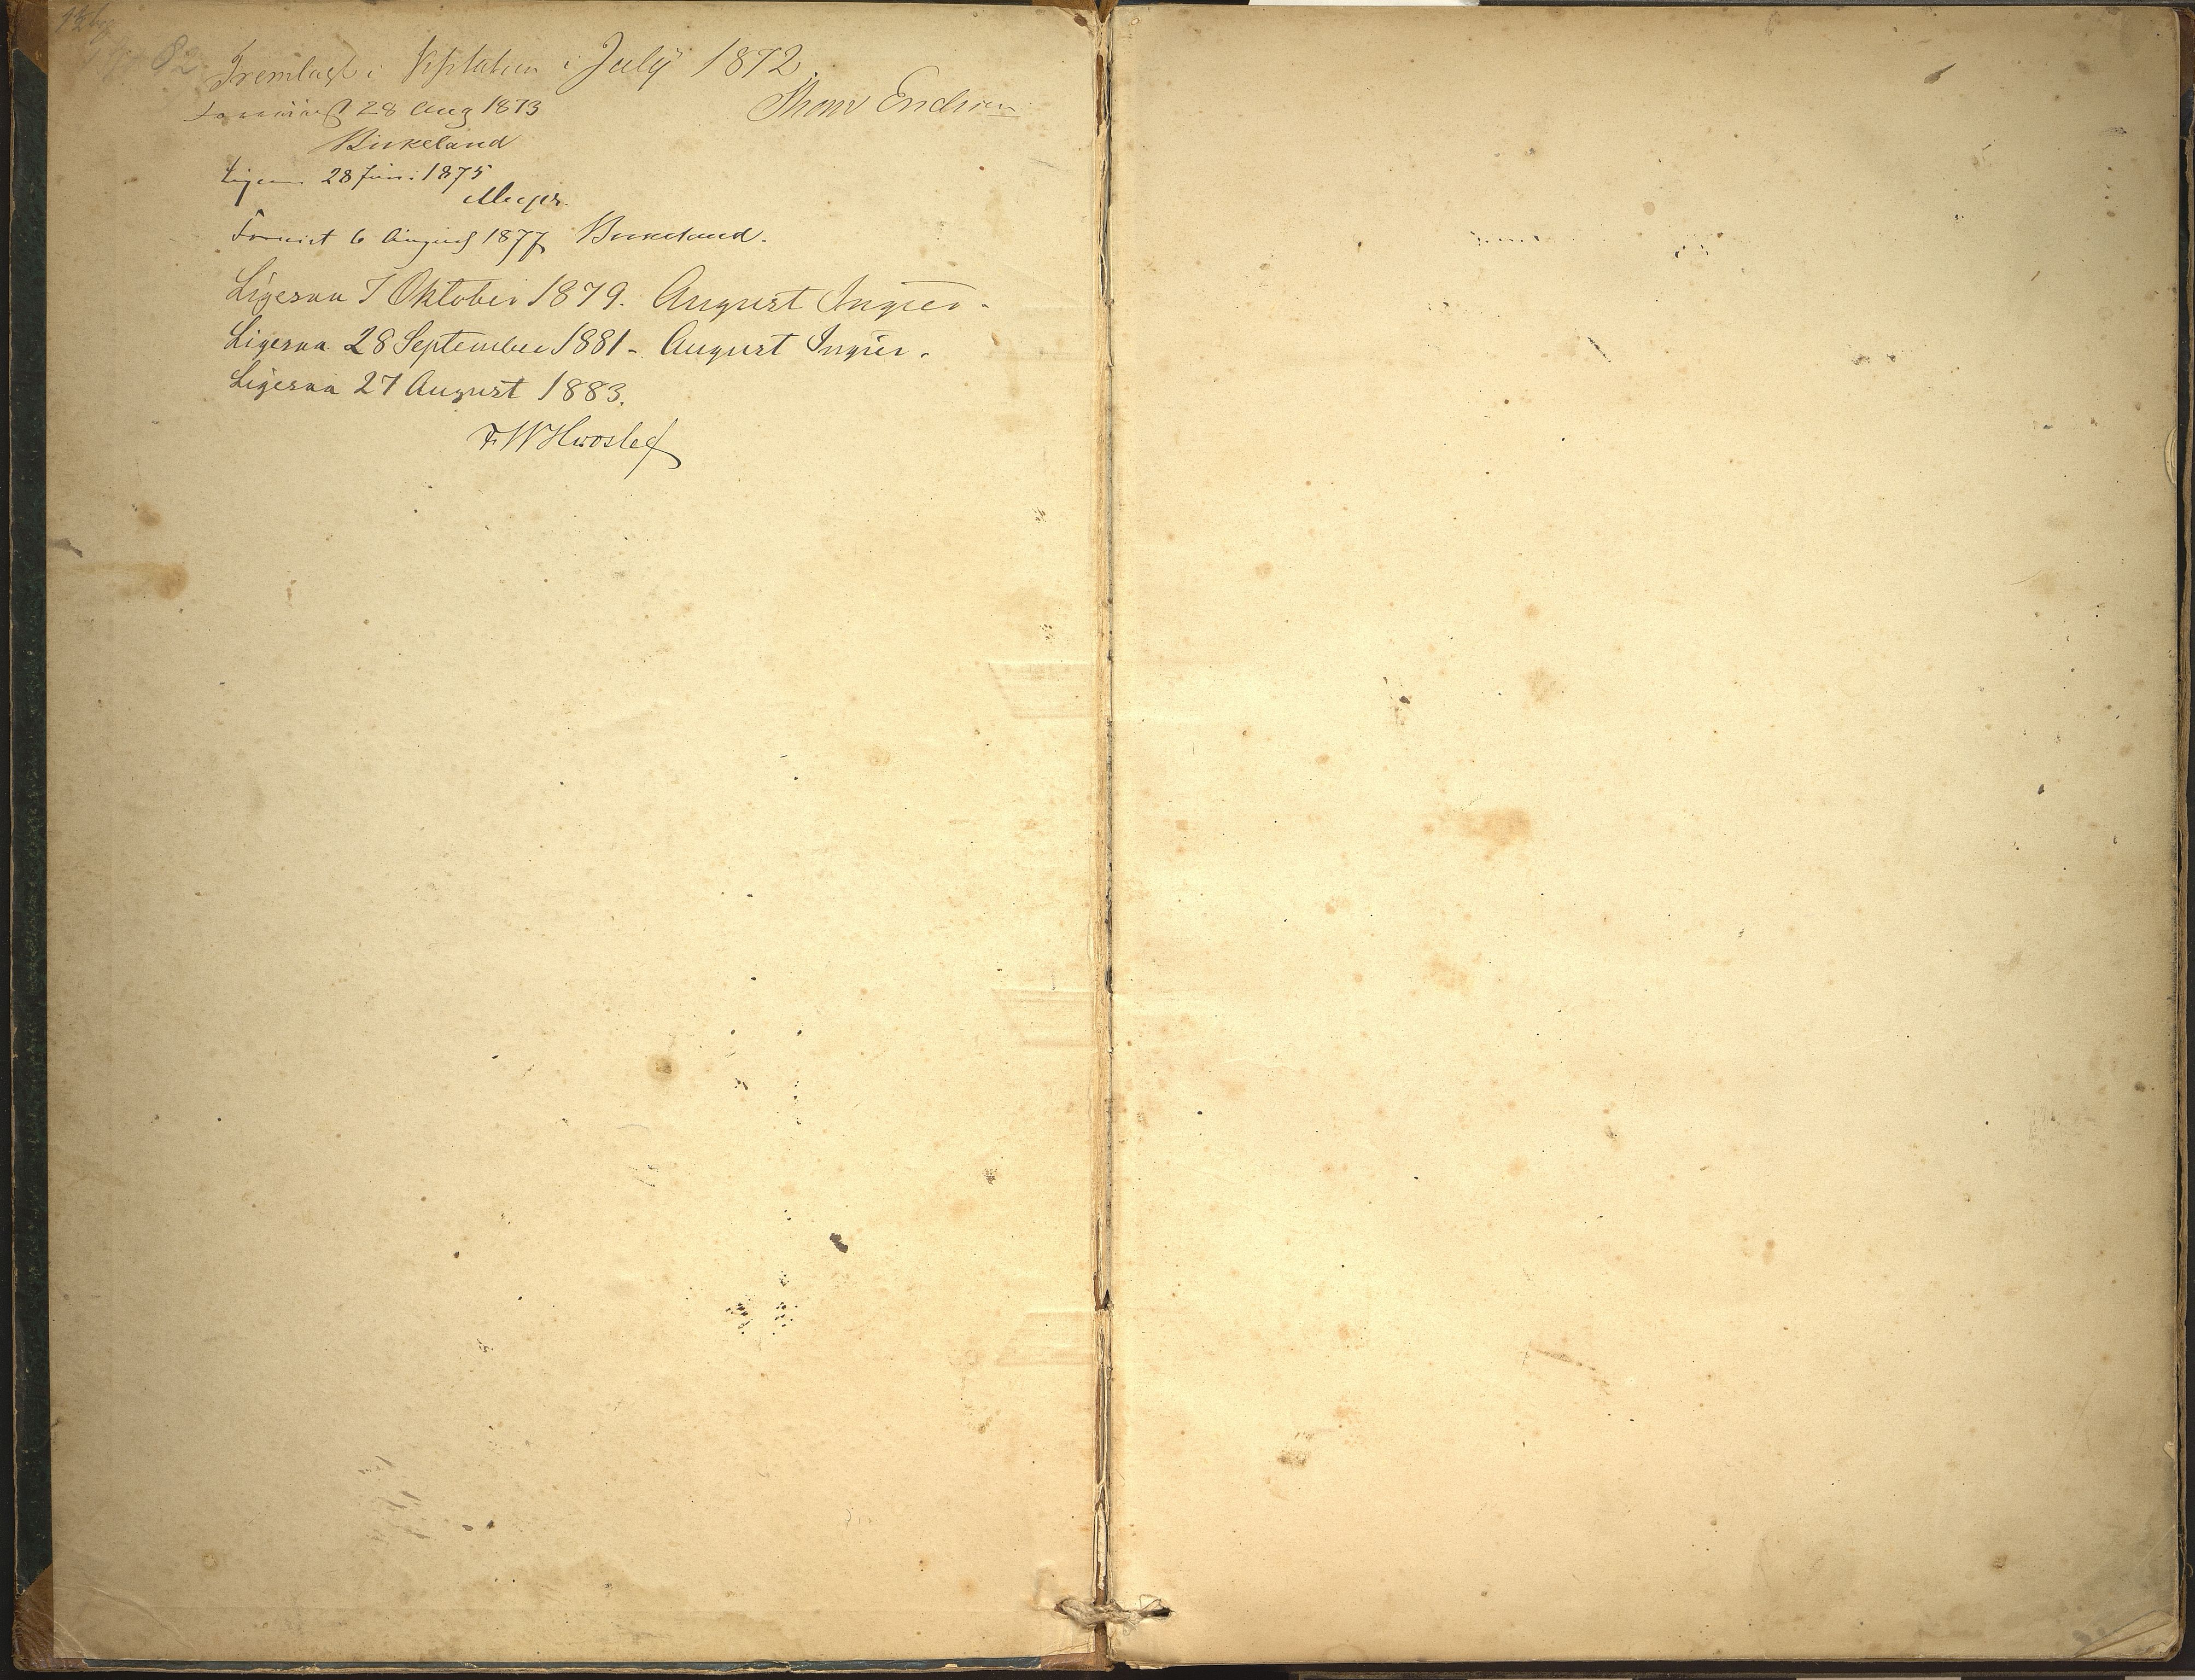 82
Fremlagt i Visitation i July 1872.
Thom Endresen
28 Aug 1873
Birkeland
Ligesaa 28 Juni 1875
Meyer.
Forevist 6 August 1877 Birkeland.
Ligesaa 7 Oktober 1879. August Ingier.
Ligesaa 28 September 1881. August Ingier.
Ligesaa 27 August 1883.
F. W Hvoslef